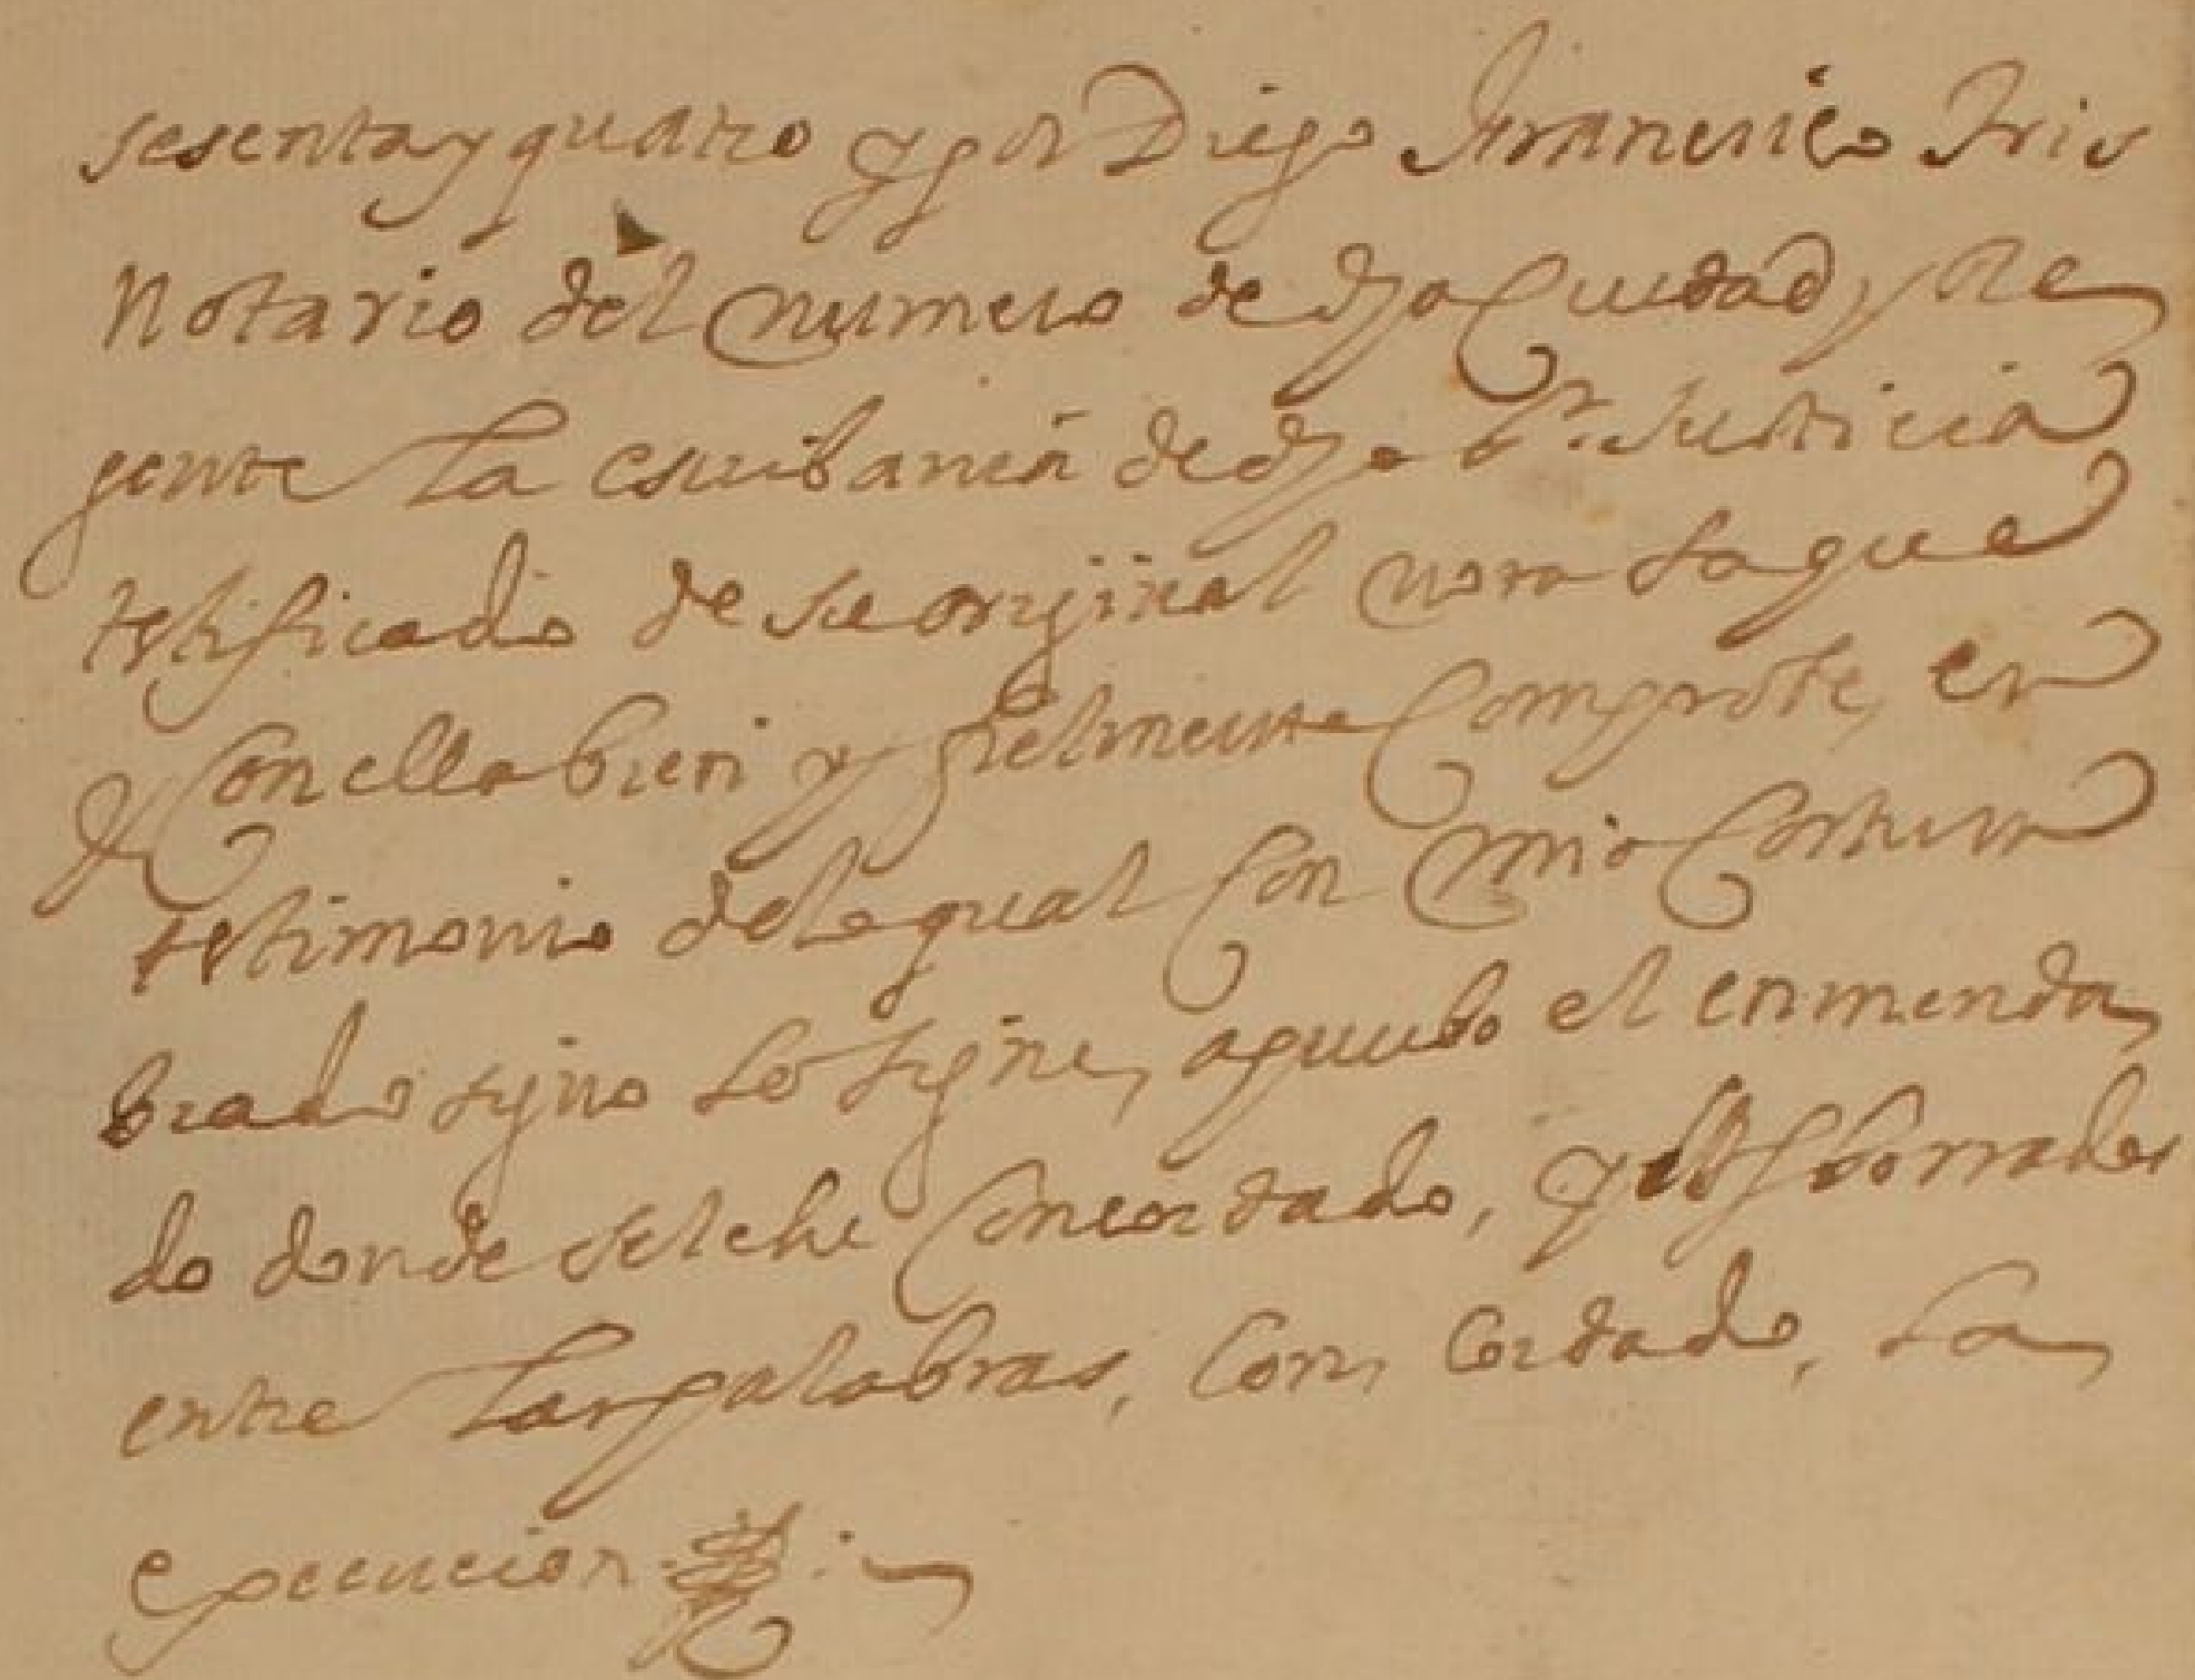 sesenta y quatro y por Diego Francisco Iris
Notario del numero de dha Ciudad, y Re
gente la escribania de dho Sr. Justicia
testificado de su orijinal nota saque
y Con ella bien y fielmente Comprobe, en
testimonio de lo qual Con mio Costum
brado signo lo signe, apruebo el enmenda
do donde se lehe Concordado, y borrados
entre las palabras, Con, Cordado, la
execucion